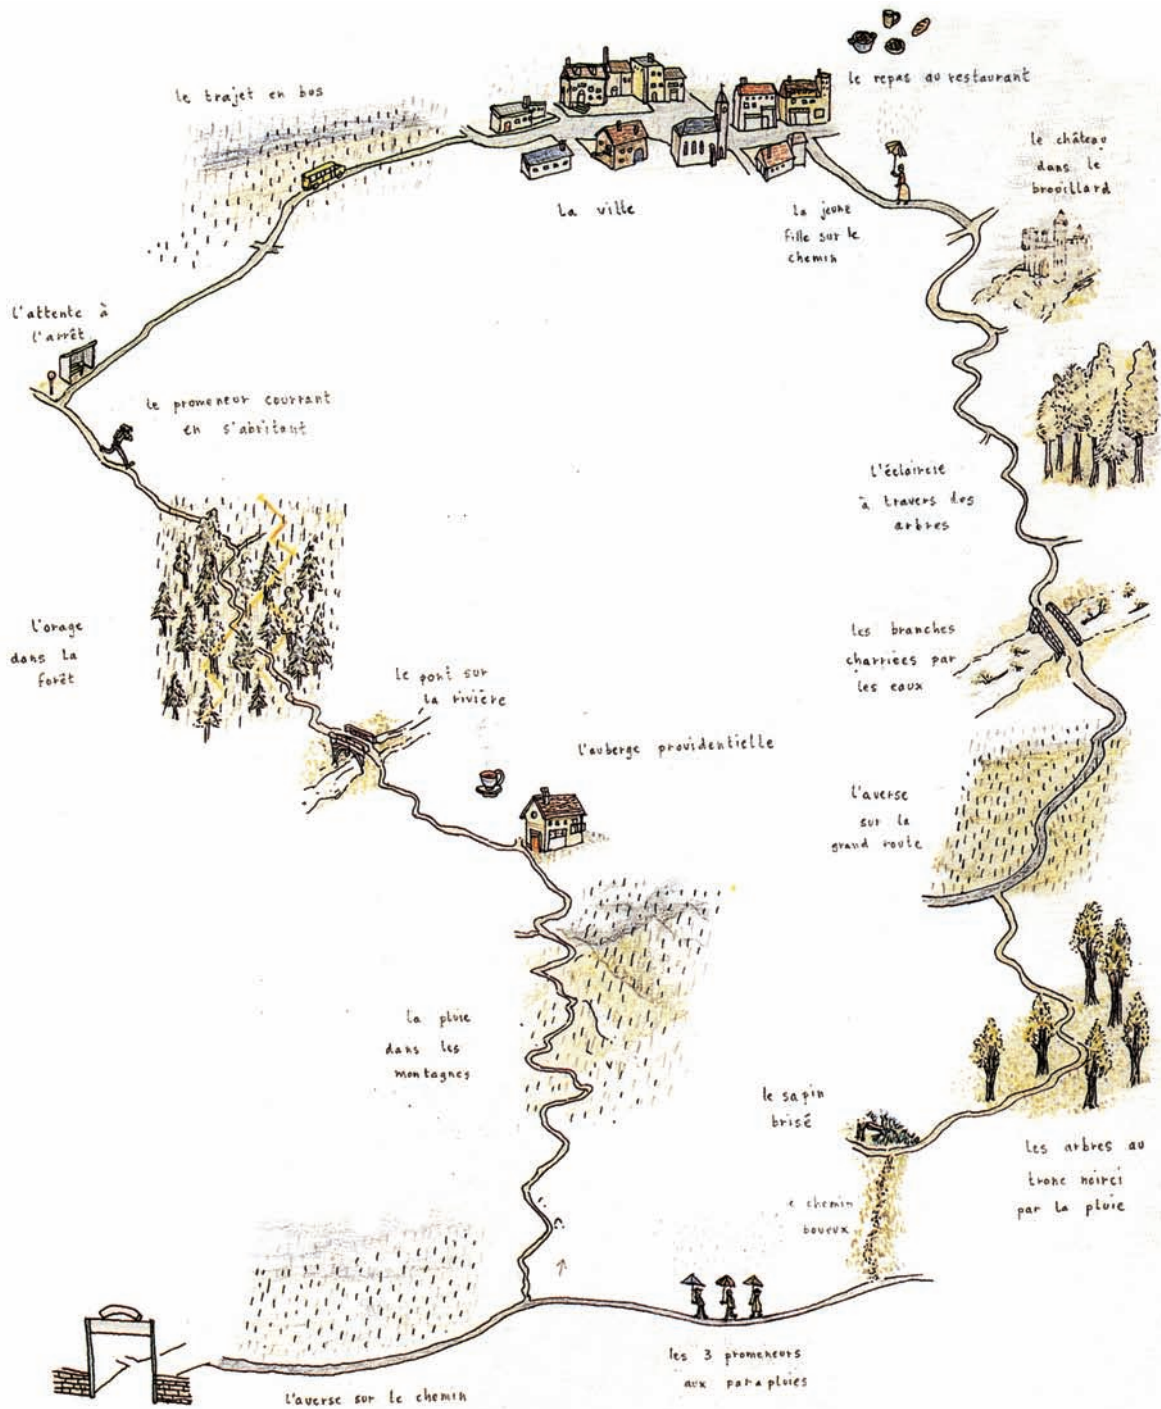 le repas au restaurant
le trajet en bus
le château
dans le
brouillard
la ville
la jeune
fille sur le
chemin
l'attente à
l'arrêt
le promeneur courrant
en s'abritant
l'éclaircie
à travers des
arbres
l'orage
dans la
forêt
les branches
charriées par
les eaux
le pont sur
la rivière
l'auberge providentielle
l'averse
sur la
grand route
la pluie
dans les
montagnes
le sapin
brisé
les arbres au
tronc noirci
par la pluie
e chemin
boueux
les 3 promeneurs
aux parapluies
l'averse sur le chemin